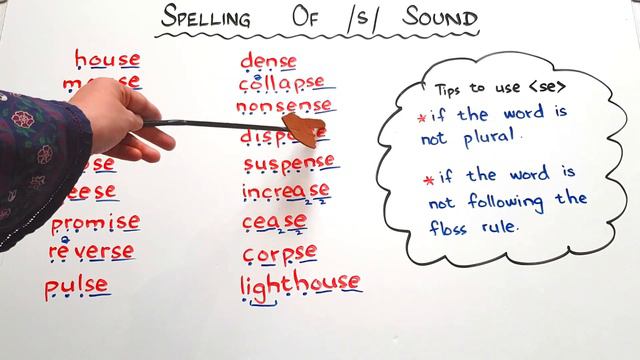 Spelling Of /s/ Sound
house
promise
reverse
pulse
dense
collapse
nonsense
suspense
increase
cease
corpse
lighthouse
Tips to use <se>
*if the word is
not plural.
*if the word is
not following the
floss rule.